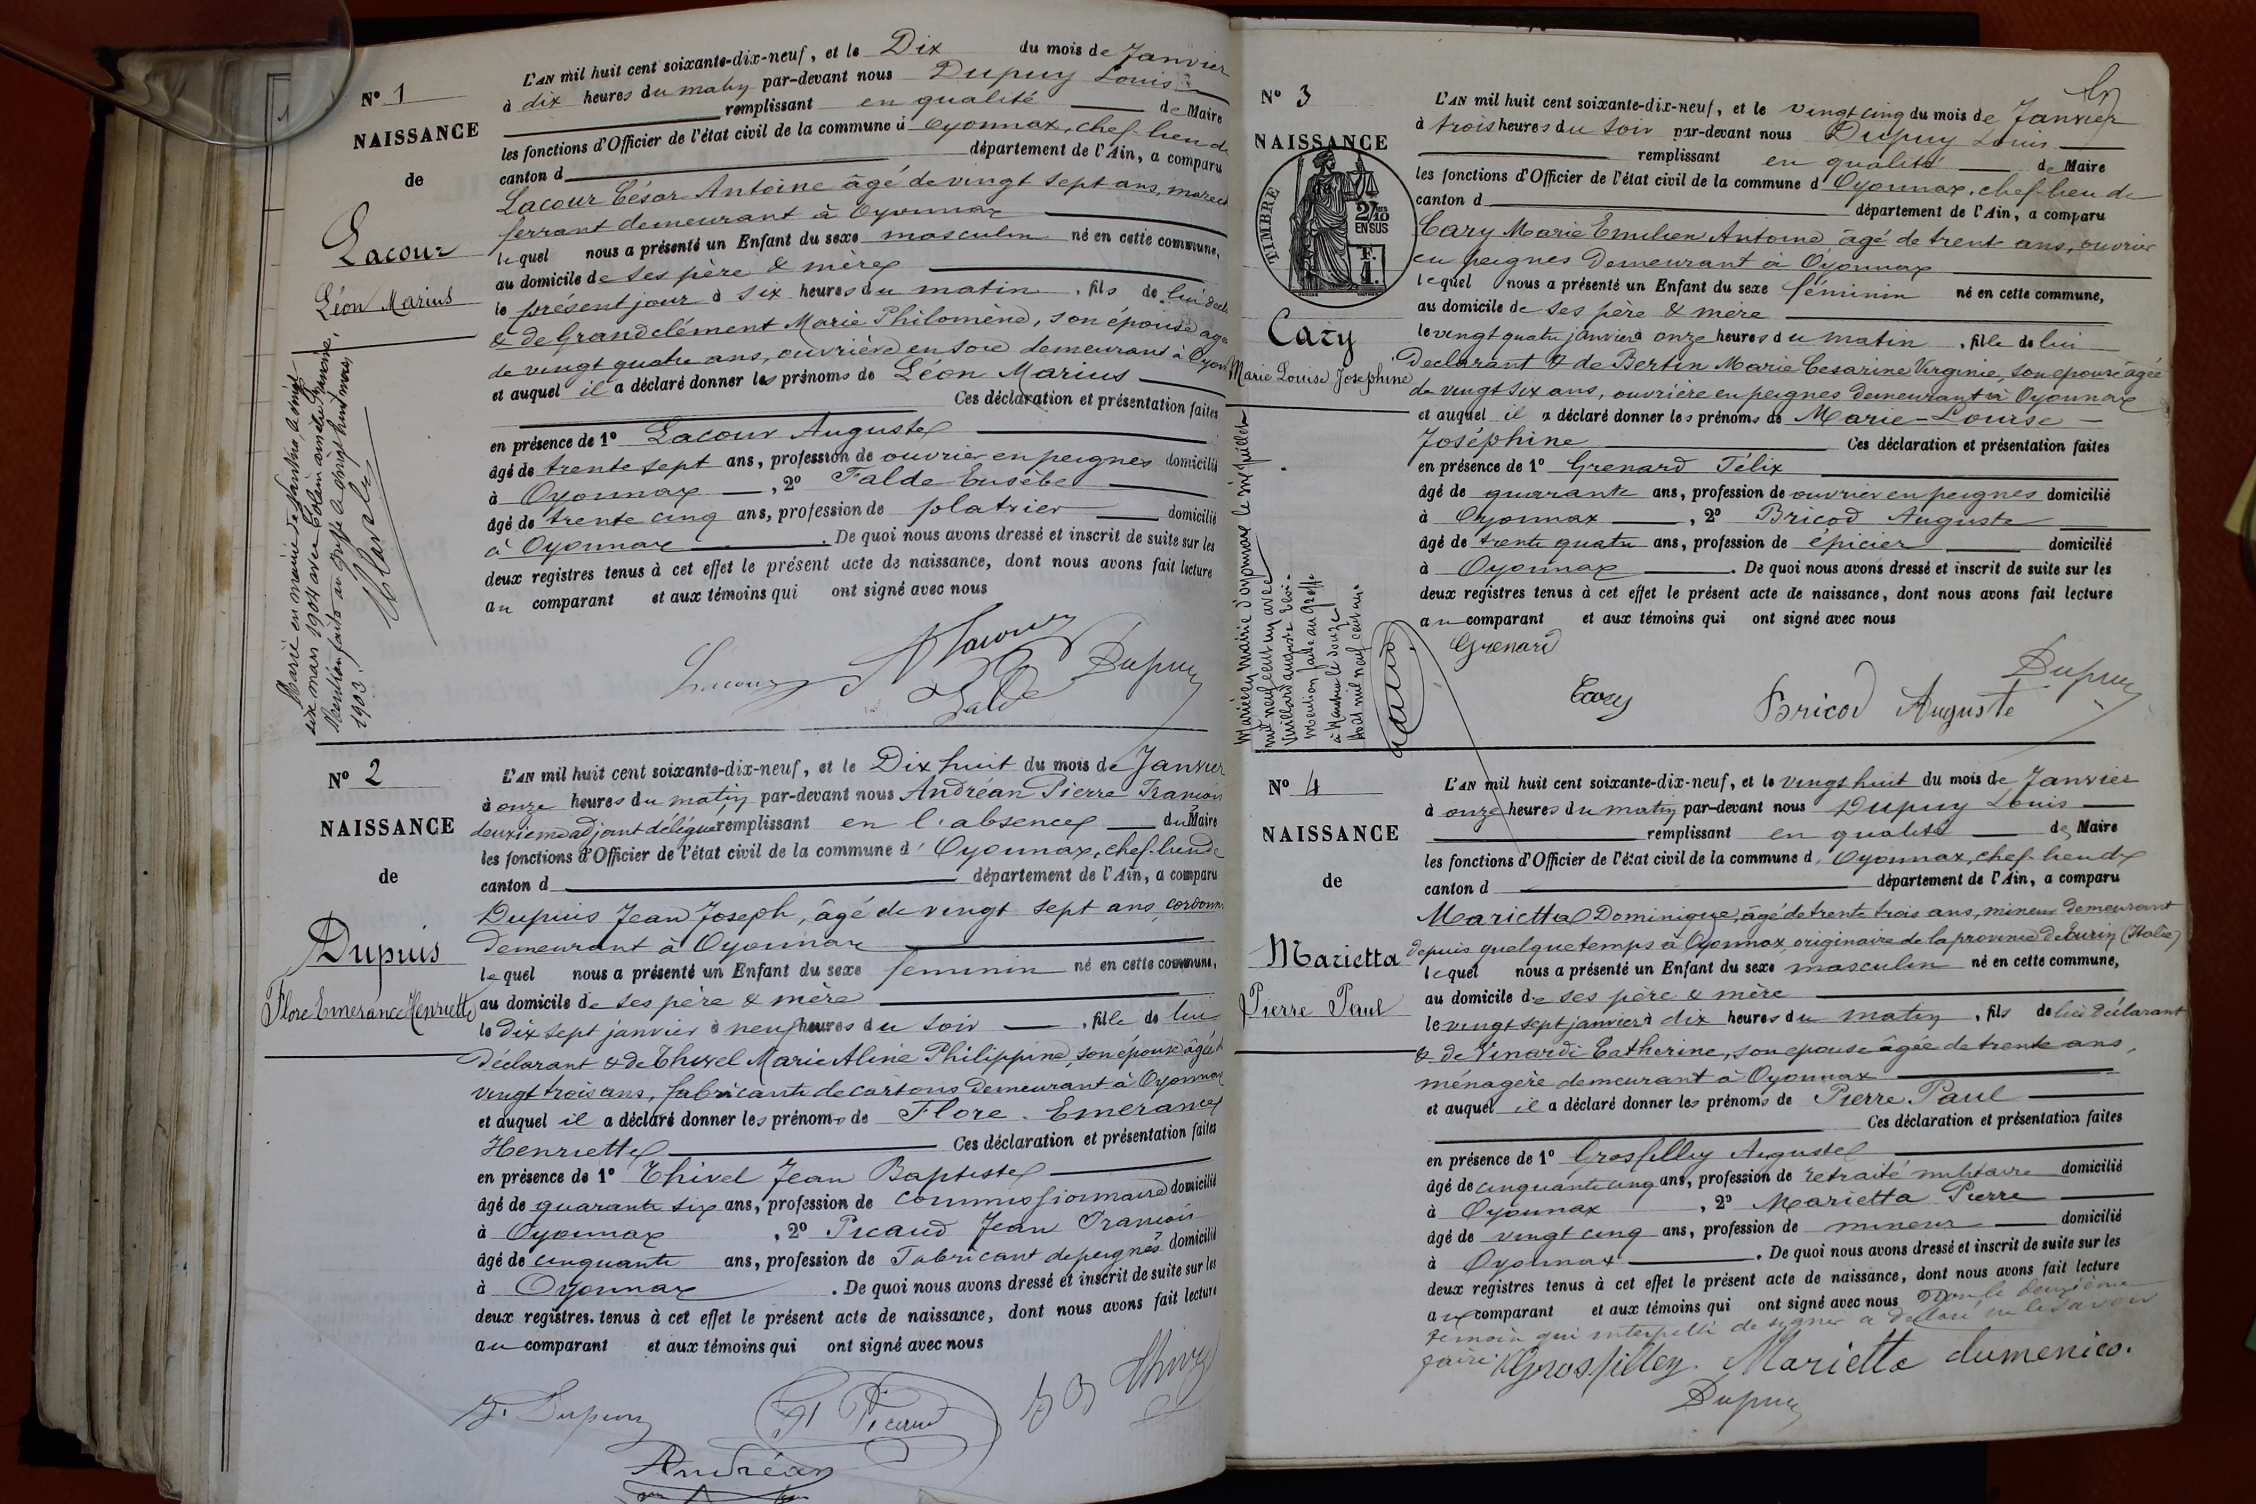 N° 1
NAISSANCE
de
Lacour
Léon Marius
L'AN mil huit cent soixante-dix-neuf, et le Dix du mois de Janvier
à dix heures du matin par-devant nous Dupuy Louis
remplissant en qualité de Maire
les fonctions d'Officier de l'état civil de la commune d Oyonnax, chef-lieu de
canton d département de l'Ain, a comparu
Lacour César Antoine âgé de vingt sept ans, marech
ferrant demeurant à Oyonnax
lequel nous a présenté un Enfant du sexe masculin né en cette commune,
au domicile de ses père & mère
le présent jour à six heures du matin, fils de lui décla
& de Grandclément Marie Philomène, son épouse agé
de vingt quatre ans, ouvrière en soie demeurant à Oyon
et auquel il a déclaré donner les prénoms de Léon Marius
Ces déclaration et présentation faites
en présence de 1° Lacour Auguste
âgé de trente sept ans, profession de ouvrier en peignes domicilié
à Oyonnax, 2° Falde Eusèbe
âgé de trente cinq ans, profession de platrier domicilié
à Oyonnax. De quoi nous avons dressé et inscrit de suite sur les
deux registres tenus à cet effet le présent acte de naissance, dont nous avons fait lecture
au comparant et aux témoins qui ont signé avec nous
Lacour A Lacour
Falde Dupuy
Marié en mairie de
dix mars 1904 avec
Mention faite au greffe le vingt huit mars
1903
N° 2
NAISSANCE
de
Dupuis
Flore Emerance Henriette
L'AN mil huit cent soixante-dix-neuf, et le Dix huit du mois de Janvier
à onze heures du matin par-devant nous Andréan Pierre François
deuxième adjoint délégué remplissant en l'absence du Maire
les fonctions d'Officier de l'état civil de la commune d'Oyonnax, chef-lieu de
canton d département de l'Ain, a comparu
Dupuis Jean Joseph, âgé de vingt sept ans, cordonn
demeurant à Oyonnax
lequel nous a présenté un Enfant du sexe feminin né en cette commune,
au domicile de ses père & mère
le dix sept janvier à neuf heures du soir, fille de lui
déclarant & de Thivel Marie Aline Philippine, son épouse âgée d
vingt trois ans, fabricante de cartons demeurant à Oyonnax
et auquel il a déclaré donner les prénoms de Flore Emerance
Henriette Ces déclaration et présentation faites
en présence de 1° Thivel Jean Baptiste
âgé de quarante six ans, profession de commissionnaire domicilié
à Oyonnax, 2° Picaud Jean François
âgé de cinquante ans, profession de Fabricant de peignes domicilié
à Oyonnax. De quoi nous avons dressé et inscrit de suite sur les
deux registres tenus à cet effet le présent acte de naissance, dont nous avons fait lecture
au comparant et aux témoins qui ont signé avec nous
Picaud
Andréan
N° 3
NAISSANCE
TIMBRE
2/10
EN SUS
F.
1.
Cary
Marie Louise Josephine
L'AN mil huit cent soixante-dix-neuf, et le vingt cinq du mois de Janvier
à trois heures du soir par-devant nous Dupuy Louis
remplissant en qualité de Maire
les fonctions d'Officier de l'état civil de la commune d'Oyonnax, chef-lieu de
canton d département de l'Ain, a comparu
Cary Marie Emilien Antoine, âgé de trente ans, ouvrier
en peignes demeurant à Oyonnax
lequel nous a présenté un Enfant du sexe féminin né en cette commune,
au domicile de ses père & mère
le vingt quatre janvier à onze heures du matin, fille de lui
déclarant & de Bertin Marie Cesarine Virginie, son epouse âgée
de vingt six ans, ouvrière en peignes demeurant à Oyonnax
et auquel il a déclaré donner les prénoms de Marie-Louise-
Joséphine Ces déclaration et présentation faites
en présence de 1° Grenard Félix
âgé de quarante ans, profession de ouvrier en peignes domicilié
à Oyonnax, 2° Bricod Auguste
âgé de trente quatre ans, profession de épicier domicilié
à Oyonnax. De quoi nous avons dressé et inscrit de suite sur les
deux registres tenus à cet effet le présent acte de naissance, dont nous avons fait lecture
au comparant et aux témoins qui ont signé avec nous
Grenard
Cary Bricod Auguste Dupuy
Mariée en mairie d'oyonnax le six juillet
mil neuf cent un avec
Vuillard auguste
mention faite au Greffe
à Nantua le douze
Août mil neuf cent un
N° 4
NAISSANCE
de
Marietta
Pierre Paul
L'AN mil huit cent soixante-dix-neuf, et le vingt huit du mois de Janvier
à onze heures du matin par-devant nous Dupuy Louis
remplissant en qualité de Maire
les fonctions d'Officier de l'état civil de la commune d'Oyonnax, chef-lieu de
canton d département de l'Ain, a comparu
Marietta Dominique, âgé de trente trois ans, mineur demeurant
depuis quelque temps à Oyonnax, originaire de la province de Turin (Italie)
lequel nous a présenté un Enfant du sexe masculin né en cette commune,
au domicile de ses père & mère
le vingt sept janvier à dix heures du matin, fils de lui déclarant
& de Vinardi Catherine, son epouse âgée de trente ans,
ménagère demeurant à Oyonnax
et auquel il a déclaré donner les prénoms de Pierre Paul
Ces déclaration et présentation faites
en présence de 1° Grosfilley Auguste
âgé de cinquante cinq ans, profession de retraité militaire domicilié
à Oyonnax, 2° Marietta Pierre
âgé de vingt cinq ans, profession de mineur domicilié
à Oyonnax. De quoi nous avons dressé et inscrit de suite sur les
deux registres tenus à cet effet le présent acte de naissance, dont nous avons fait lecture
au comparant et aux témoins qui ont signé avec nous Non le deuxième
témoin qui interpellé de signer a déclaré ne le savoir
faire. Grosfilley. Marietta dumenico.
Dupuy